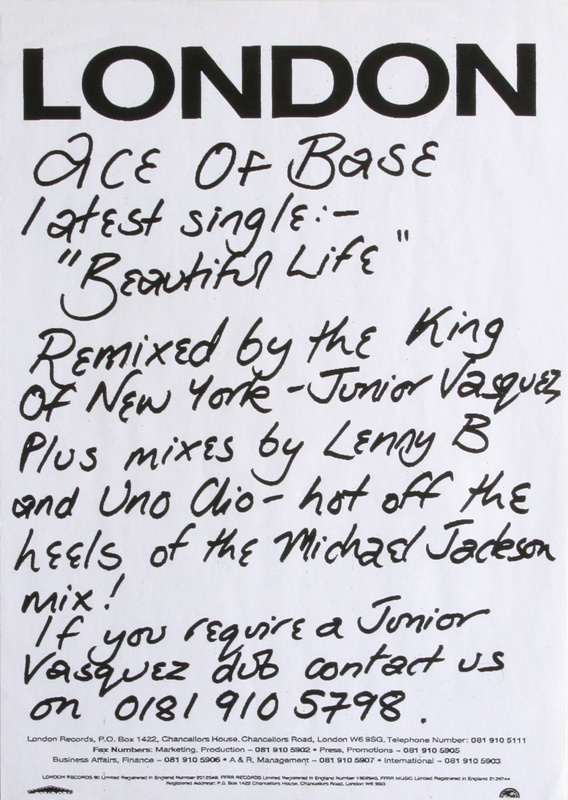 LONDON
Ace Of Base
latest single:-
"Beautiful Life"
Remixed by the King
Of New York - Junior Vasquez
Plus mixes by Lenny B
and Uno Clio - hot off the
heels of the Michael Jackson
mix!
If you require a Junior
Vasquez dub contact us
on 0181 910 5798.
London Records, P.O. Box 1422, Chancellors House, Chancellors Road, London W6 9SG. Telephone Number: 081 910 5111
Fax Numbers: Marketing, Production – 081 910 5902 • Press, Promotions – 081 910 5905
Business Affairs, Finance – 081 910 5906 • A & R, Management – 081 910 5907 • International – 081 910 5903
LONDON RECORDS 90 Limited Registered in England Number FFRR RECORDS Limited Registered in England Number FFRR MUSIC Limited Registered in England
Registered Address: P.O. Box 1422 Chancellors House, Chancellors Road, London W6 9SG